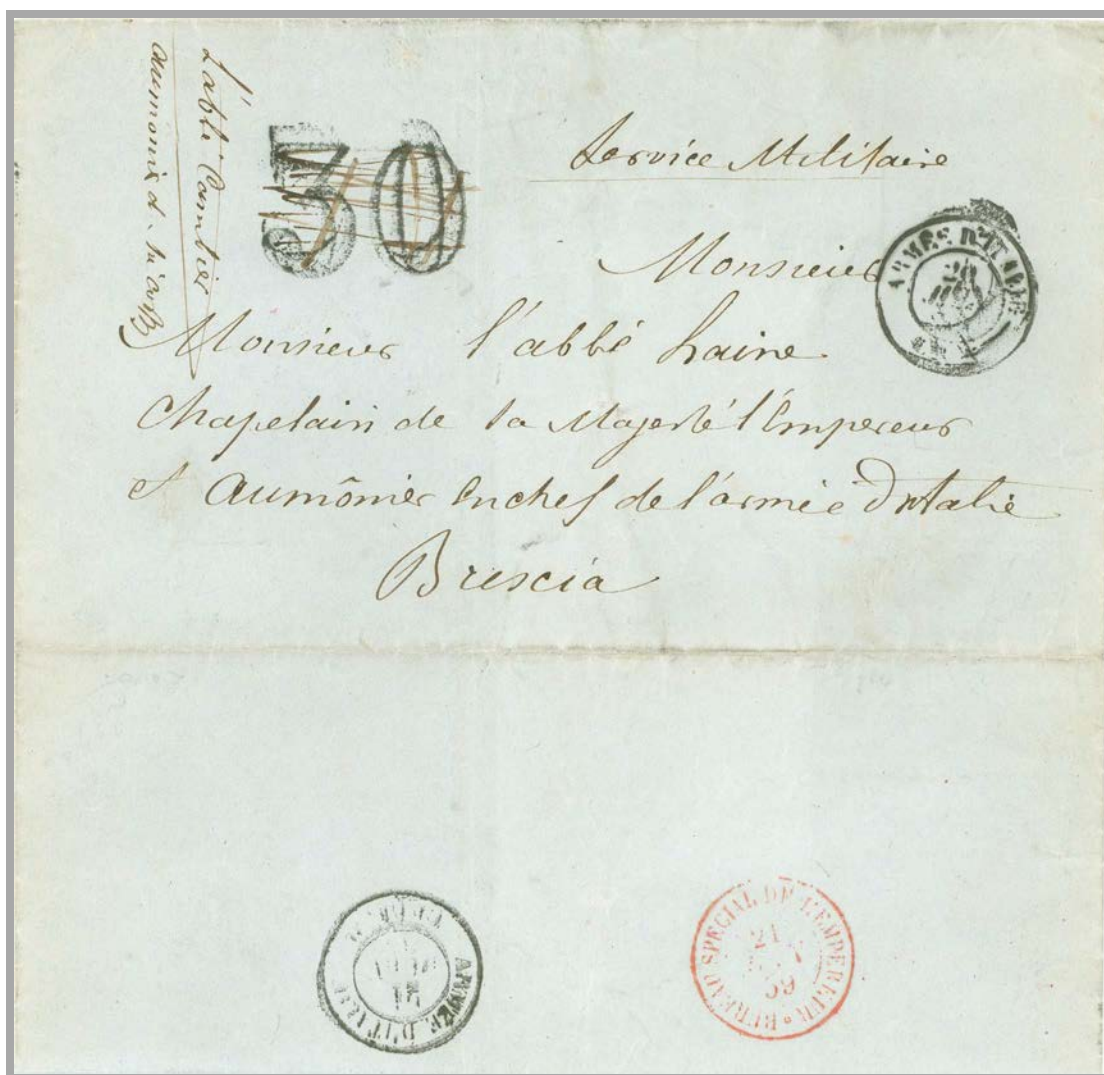 L'abbé Cambier
aumonier d.
30
Service Militaire
Monsieur
Monsieur l'abbé Laine
Chapelain de sa Majesté l'Empereur
et aumônier en chef de l'armée d'Italie
Brescia
ARMÉE D'ITALIE
ARMÉE D'ITALIE
BUREAU SPECIAL DE L'EMPEREUR
21
59